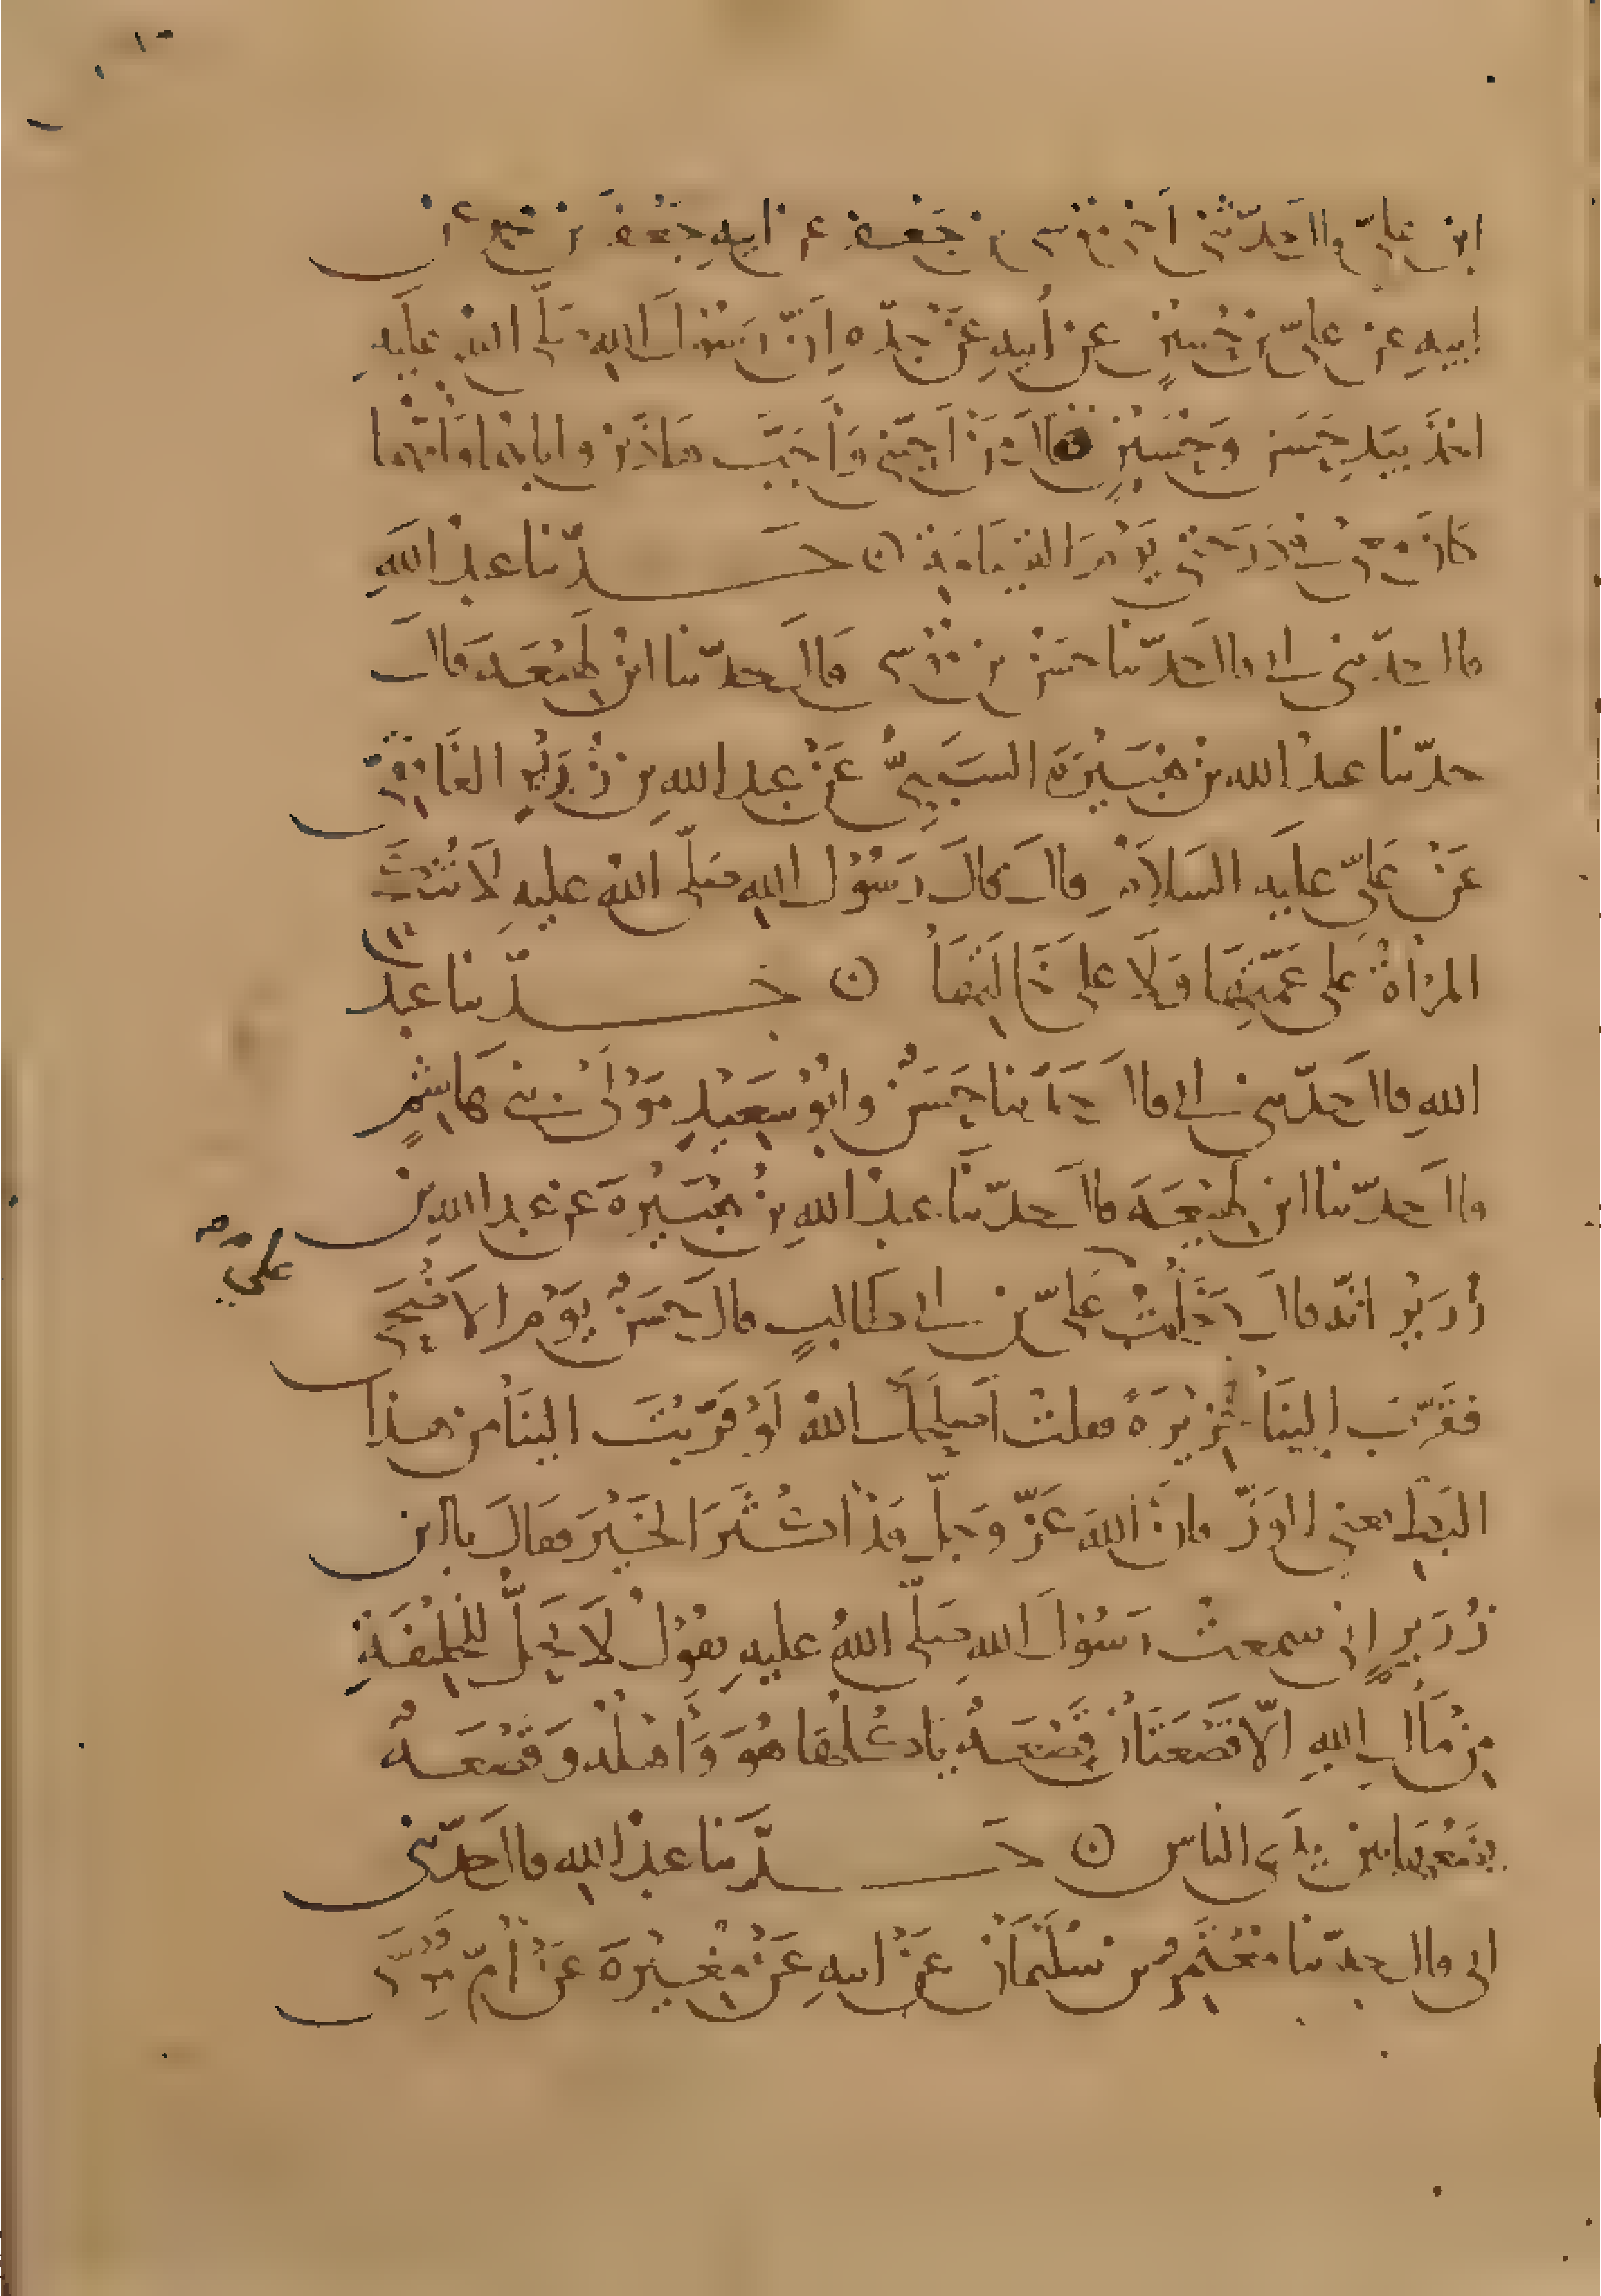 ابن علي قال حدثني اخي موسى بن جعفر عن ابيه جعفر بن محمد عن
ابيه عن علي بن حسين عن أبيه عن جده ان رسول الله صلى الله عليه
اخذ بيد حسن وحسين فقال من احبني وأحب هاذين واباهما وامهما
كان معي في درجتي يوم القيامة ۞ حدثنا عبد الله
قال حدثني ابي قال حدثنا حسن بن موسى قال حدثنا ابن لهيعة قال
حدثنا عبد الله بن هبيرة السبئي عن عبد الله بن زرير الغافقي
عن علي عليه السلام قال قال رسول الله صلى الله عليه لا تنكح
المرأة على عمتها ولا على خالتها ۞ حدثنا عبد
الله قال حدثني ابي قال حدثنا حسن وابو سعيد مولى بني هاشم
قالا حدثنا ابن لهيعة قال حدثنا عبد الله بن هبيرة عن عبد الله بن
زرير انه قال دخلت علي بن ابي طالب قال حسن يوم الاضحى
على
فقرب الينا خزيرة فقلت اصلحك الله لو قربت الينا من هذا
البط يعني الوز فان الله عز وجل قد اكثر الخير فقال يا ابن
زرير إني سمعت رسول الله صلى الله عليه يقول لا يحل للخليفة
من مال الله الا قصعتان قصعة يأكلها هو وأهله وقصعة
يضعها بين يدي الناس ۞ حدثنا عبد الله قال حدثني
ابي قال حدثنا معتمر بن سليمان عن ابيه عن مغيرة عن أم موسى